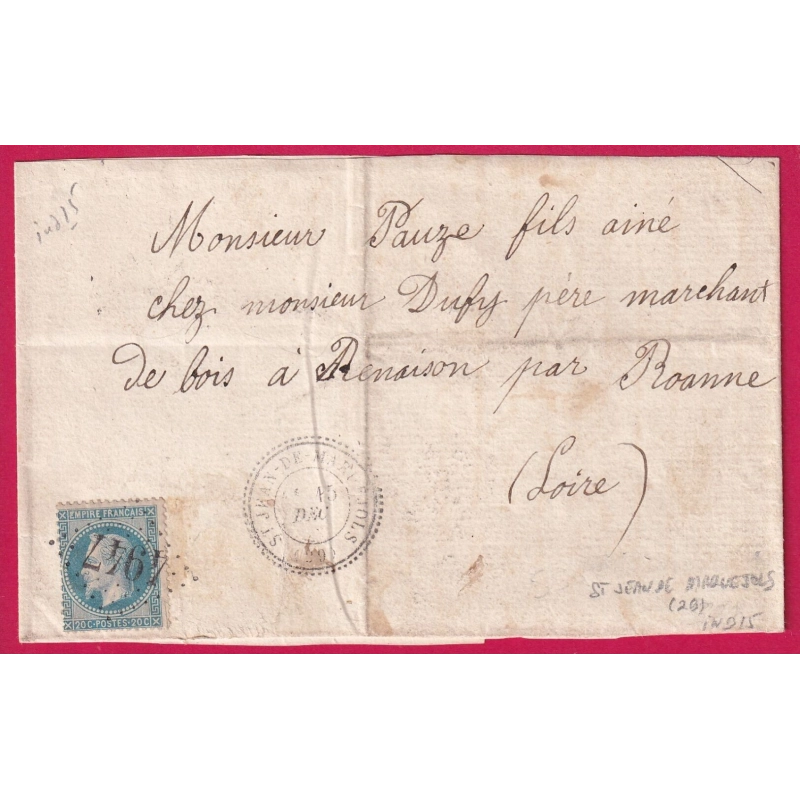 ind 15
Monsieur Pauze fils ainé
chez monsieur Dufy père marchant
de bois à Renaison par Roanne
(Loire)
ST JEAN-DE-MARUEJOLS
15
DEC
EMPIRE FRANÇAIS
4947
20C·POSTES·20C
ST JEAN DE MARUEJOLS
(29)
IND 15